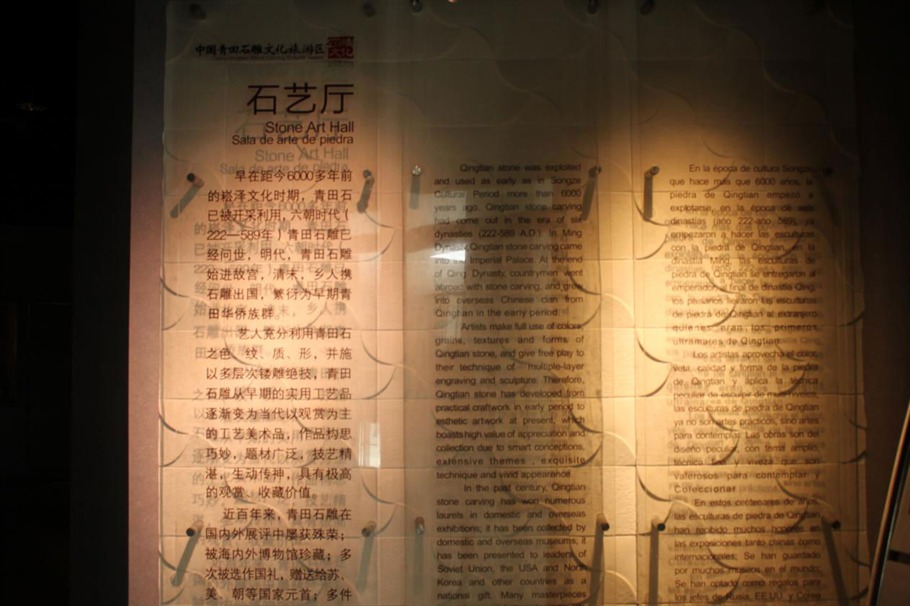 中国青田石雕文化旅游区
石艺厅
Stone Art Hall
Sala de arte de piedra
早在距今6000多年前
的崧泽文化时期，青田石
已被开采利用，六朝时代（
222—589年）青田石雕已
经问世，明代，青田石雕
始进故宫，清末，乡人携
石雕出国，繁衍为早期青
田华侨族群。
艺人充分利用青田石
之色、纹、质、形，并施
以多层次镂雕绝技，青田
石雕从早期的实用工艺品
逐渐变为当代以观赏为主
的工艺美术品，作品构思
巧妙，题材广泛，技艺精
湛，生动传神，具有极高
的观赏、收藏价值。
近百年来，青田石雕在
国内外展评中屡获殊荣；
被海内外博物馆珍藏；多
次被选作国礼，赠送给苏、
美、朝等国家元首；多件
Qingtian stone was exploited
and used as early as in Songze
Cultural Period more than 6000
years ago. Qingtian stone carving
had come out in the era of six
dynasties (222-589 A.D.). In Ming
Dynasty, Qingtian stone carving came
into the Imperial Palace. At the end
of Qing Dynasty, countrymen went
abroad with stone carving, and grew
into overseas Chinese clan from
Qingtian in the early period.
Artists make full use of colors,
grains, textures and forms of
Qingtian stone, and give free play to
their technique of multiple-layer
engraving and sculpture. Therefore,
Qingtian stone has developed from
practical craftwork in early period to
esthetic artwork at present, which
boasts high value of appreciation and
collection due to smart conceptions,
extensive themes , exquisite
technique and vivid appearance.
In the past century, Qingtian
stone carving has won numerous
laurels in domestic and overseas
exhibitions; it has been collected by
domestic and overseas museums; it
has been presented to leaders of
Soviet Union, the USA and North
Korea and other countries as a
national gift. Many masterpieces
En la época de cultura Songze,
que hace más que 6000 años, la
piedra de Qingtian empezó a
explotarse, en la época de seis
dinastías (ano 222-ano 589), ya
empezaron a hacer las esculturas
con la piedra de Qingtian, en la
dinastía Ming, las esculturas de
piedra de Qingtian se entregaron al
emperador, al final de dinastía Qing,
los paisanos llevaron las esculturas
de piedra de Qingtian al extranjero
quienes eran los primeros
ultramares de Qingtian.
Los artistas aprovecha el color,
veta, calidad y forma de la piedra
de Qingtian y aplica la técnica
peculiar de esculpir de multiniveles,
las esculturas de piedra de Qingtian
ya no son artes prácticos, sino artes
para contemplar. Las obras son del
diseño peculiar, con tema amplio,
técnica fina y viveza que son
valerosos para contemplar y
Coleccionar
En estos centenares de años
las esculturas de piedra de Qingtian
han recibido muchos honores en
las exposiciones tanto chinas como
internacionales; Se han guardado
por muchos museos en el mundo;
Se han optado como regalos para
los jefes de Rusia, EE.UU. y Corea